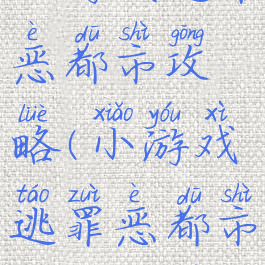 è dū shì gōng
恶都市攻
lüè xiǎo yóu xì
略(小游戏
táo zuì è dū shì
逃罪恶都市